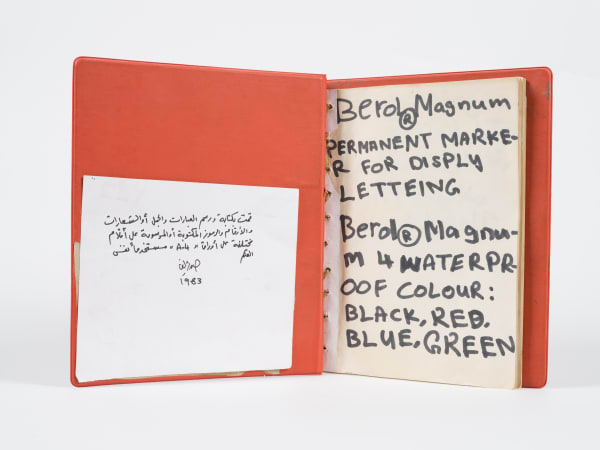 قمت بكتابة ورسم العبارات والجمل أو الشعارات
والأرقام والرموز المكتوبة أو المرسومة على أقلام
مختلفة على أوراق « A4 » مستخدماً نفس
القلم
1983
Berol® Magnum
PERMANENT MARKE-
R FOR DISPLY
LETTEING
Berol® Magnu-
m 4 WATERPR-
OOF COLOUR:
BLACK, RED,
BLUE, GREEN